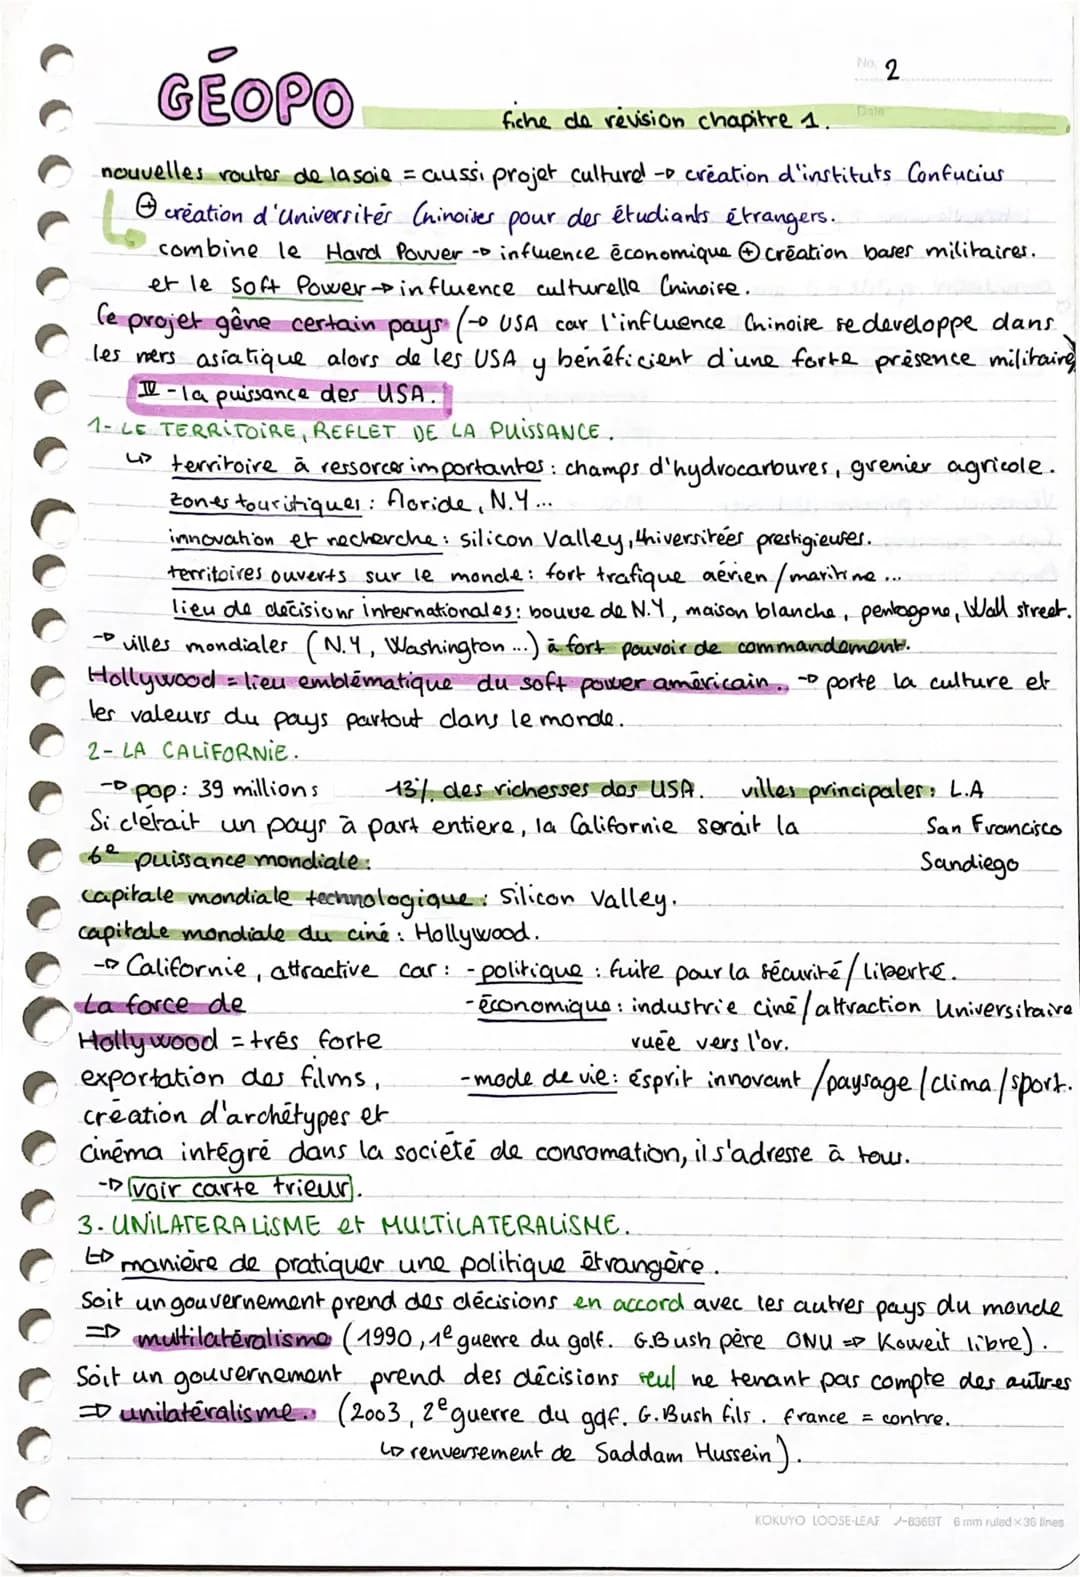 No. 2
GÉOPO
Date
fiche de révision chapitre 1.
nouvelles routes de la soie = aussi projet culturel → création d'instituts Confucius
⊕ création d'Universités Chinoises pour des étudiants étrangers.
combine le Hard Power → influence économique ⊕ création bases militaires.
et le Soft Power → influence culturelle Chinoise.
Ce projet gêne certain pays (→ USA car l'influence Chinoise se developpe dans
les mers asiatique alors de les USA y bénéficient d'une forte présence militaire)
IV - la puissance des USA.
1- LE TERRITOIRE, REFLET DE LA PUISSANCE.
↳ territoire à ressorces importantes : champs d'hydrocarbures, grenier agricole.
zones touristiques : floride, N.Y...
innovation et recherche : silicon Valley, Universitées prestigieuses.
territoires ouverts sur le monde : fort trafique aérien / maritime ...
lieu de décisions internationales : bourse de N.Y, maison blanche, pentagone, Wall street.
→ villes mondiales (N.Y, Washington ...) à fort pouvoir de commandement.
Hollywood = lieu emblématique du soft power américain. → porte la culture et
les valeurs du pays partout dans le monde.
2- LA CALIFORNIE.
→ pop : 39 millions 13% des richesses des USA. villes principales : L.A
Si c'était un pays à part entiere, la Californie serait la San Francisco
6e puissance mondiale : Sandiego
capitale mondiale technologique : Silicon Valley.
capitale mondiale du ciné : Hollywood.
→ Californie, attractive car : - politique : fuite pour la sécurité / liberté.
La force de - économique : industrie ciné / attraction Universitaire
Hollywood = trés forte ruée vers l'or.
exportation des films, - mode de vie : ésprit innovant / paysage / clima / sport.
création d'archétypes et
cinéma intégré dans la société de consomation, il s'adresse à tous.
→ voir carte trieur.
3- UNILATERALISME et MULTILATERALISME.
↳ manière de pratiquer une politique étrangère.
Soit un gouvernement prend des décisions en accord avec les autres pays du monde
⇒ multilatéralisme (1990, 1e guerre du golf. G.Bush père ONU ⇒ Koweit libre).
Soit un gouvernement prend des décisions seul ne tenant pas compte des autres
⇒ unilatéralisme. (2003, 2e guerre du golf. G.Bush fils. france = contre.
↳ renversement de Saddam Hussein).
KOKUYO LOOSE-LEAF ノ-836BT 6 mm ruled × 36 lines